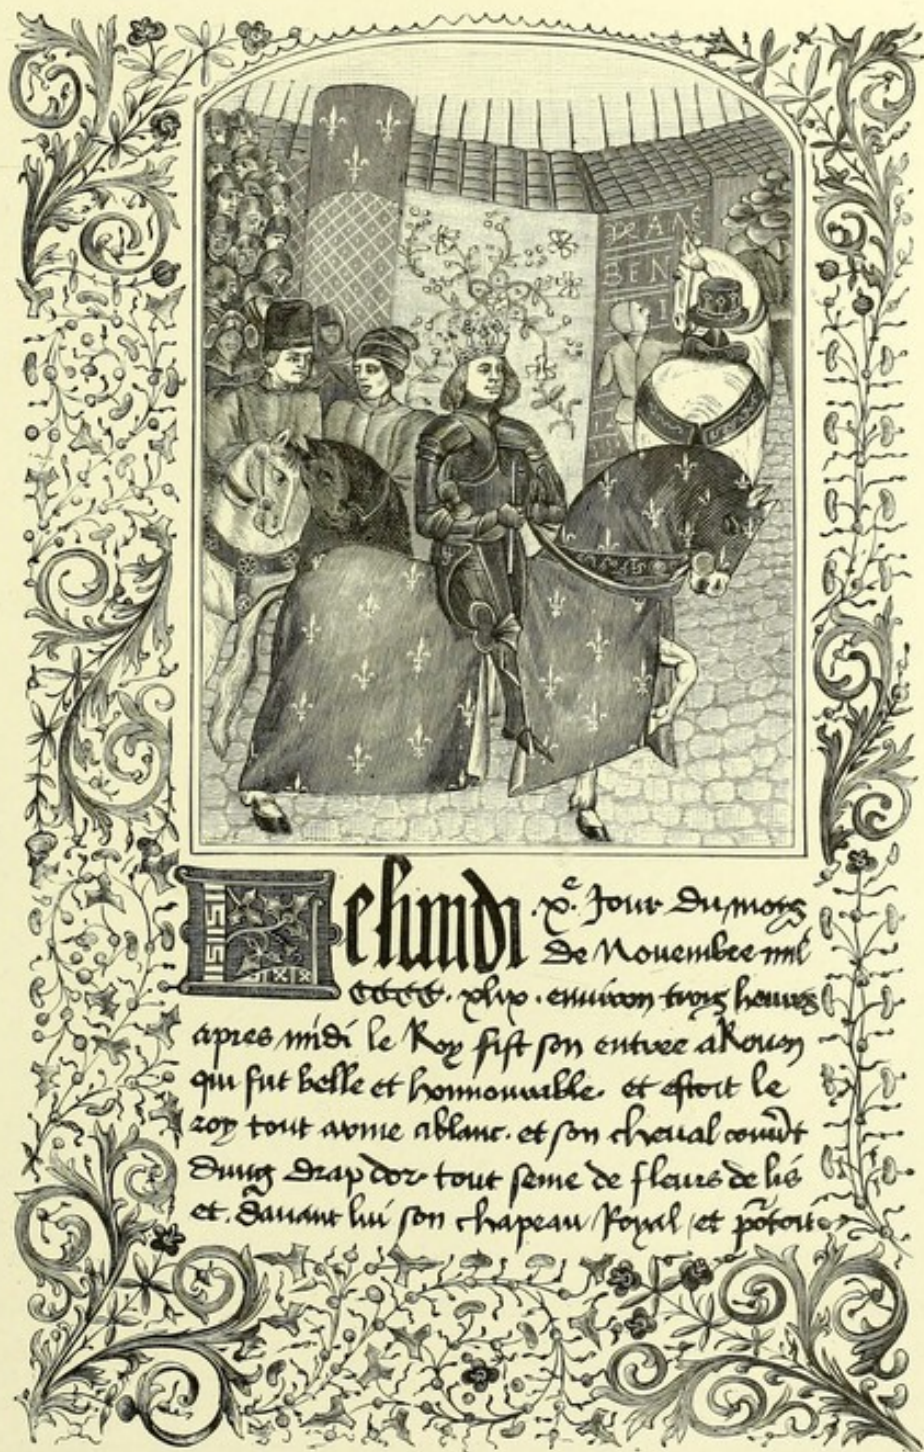 BEN
I
Le lundi .xe. Jour du moys
de Novembre mil
CCCC. xlix. environ troys heures
apres midi le Roy fist son entree a Rouen
qui fut belle et honnourable. et estoit le
roy tout arme a blanc. et son cheval couvert
dung drap dor tout seme de fleurs de lis
et davant lui son chapeau Royal et portoit